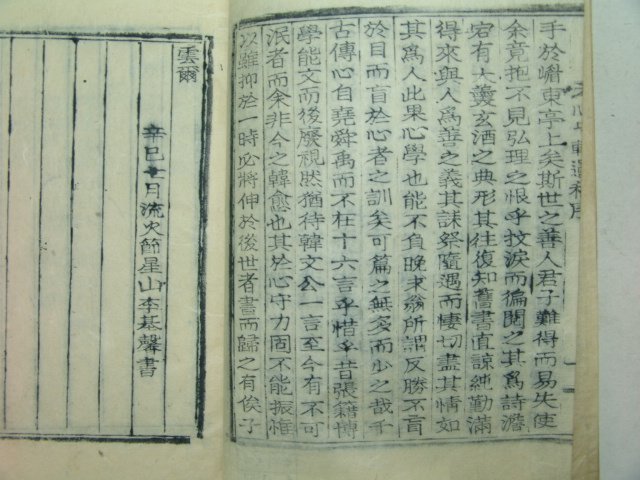 手於嶠東亭上矣斯世之善人君子難得而易失使
余竟抱不見弘理之恨乎抆淚而徧閱之其爲詩澹
宕有大羹玄酒之典形其往復知舊書直諒純勤滿
得來與人爲善之義其誄祭隨遇而悽切盡其情如
其爲人此果心學也能不負晚求翁所謂反勝不盲
於目而盲於心者之訓矣可篇之無多而少之哉千
古傳心自堯舜禹而不在十六言乎惜乎昔張籍博
學能文而後廢視然猶待韓文公一言至今有不可
泯者而余非今之韓愈也其於心守力固不能振惟
以雖抑於一時必將伸於後世者書而歸之有俟子
雲爾
辛巳七月流火節星山李基馨書